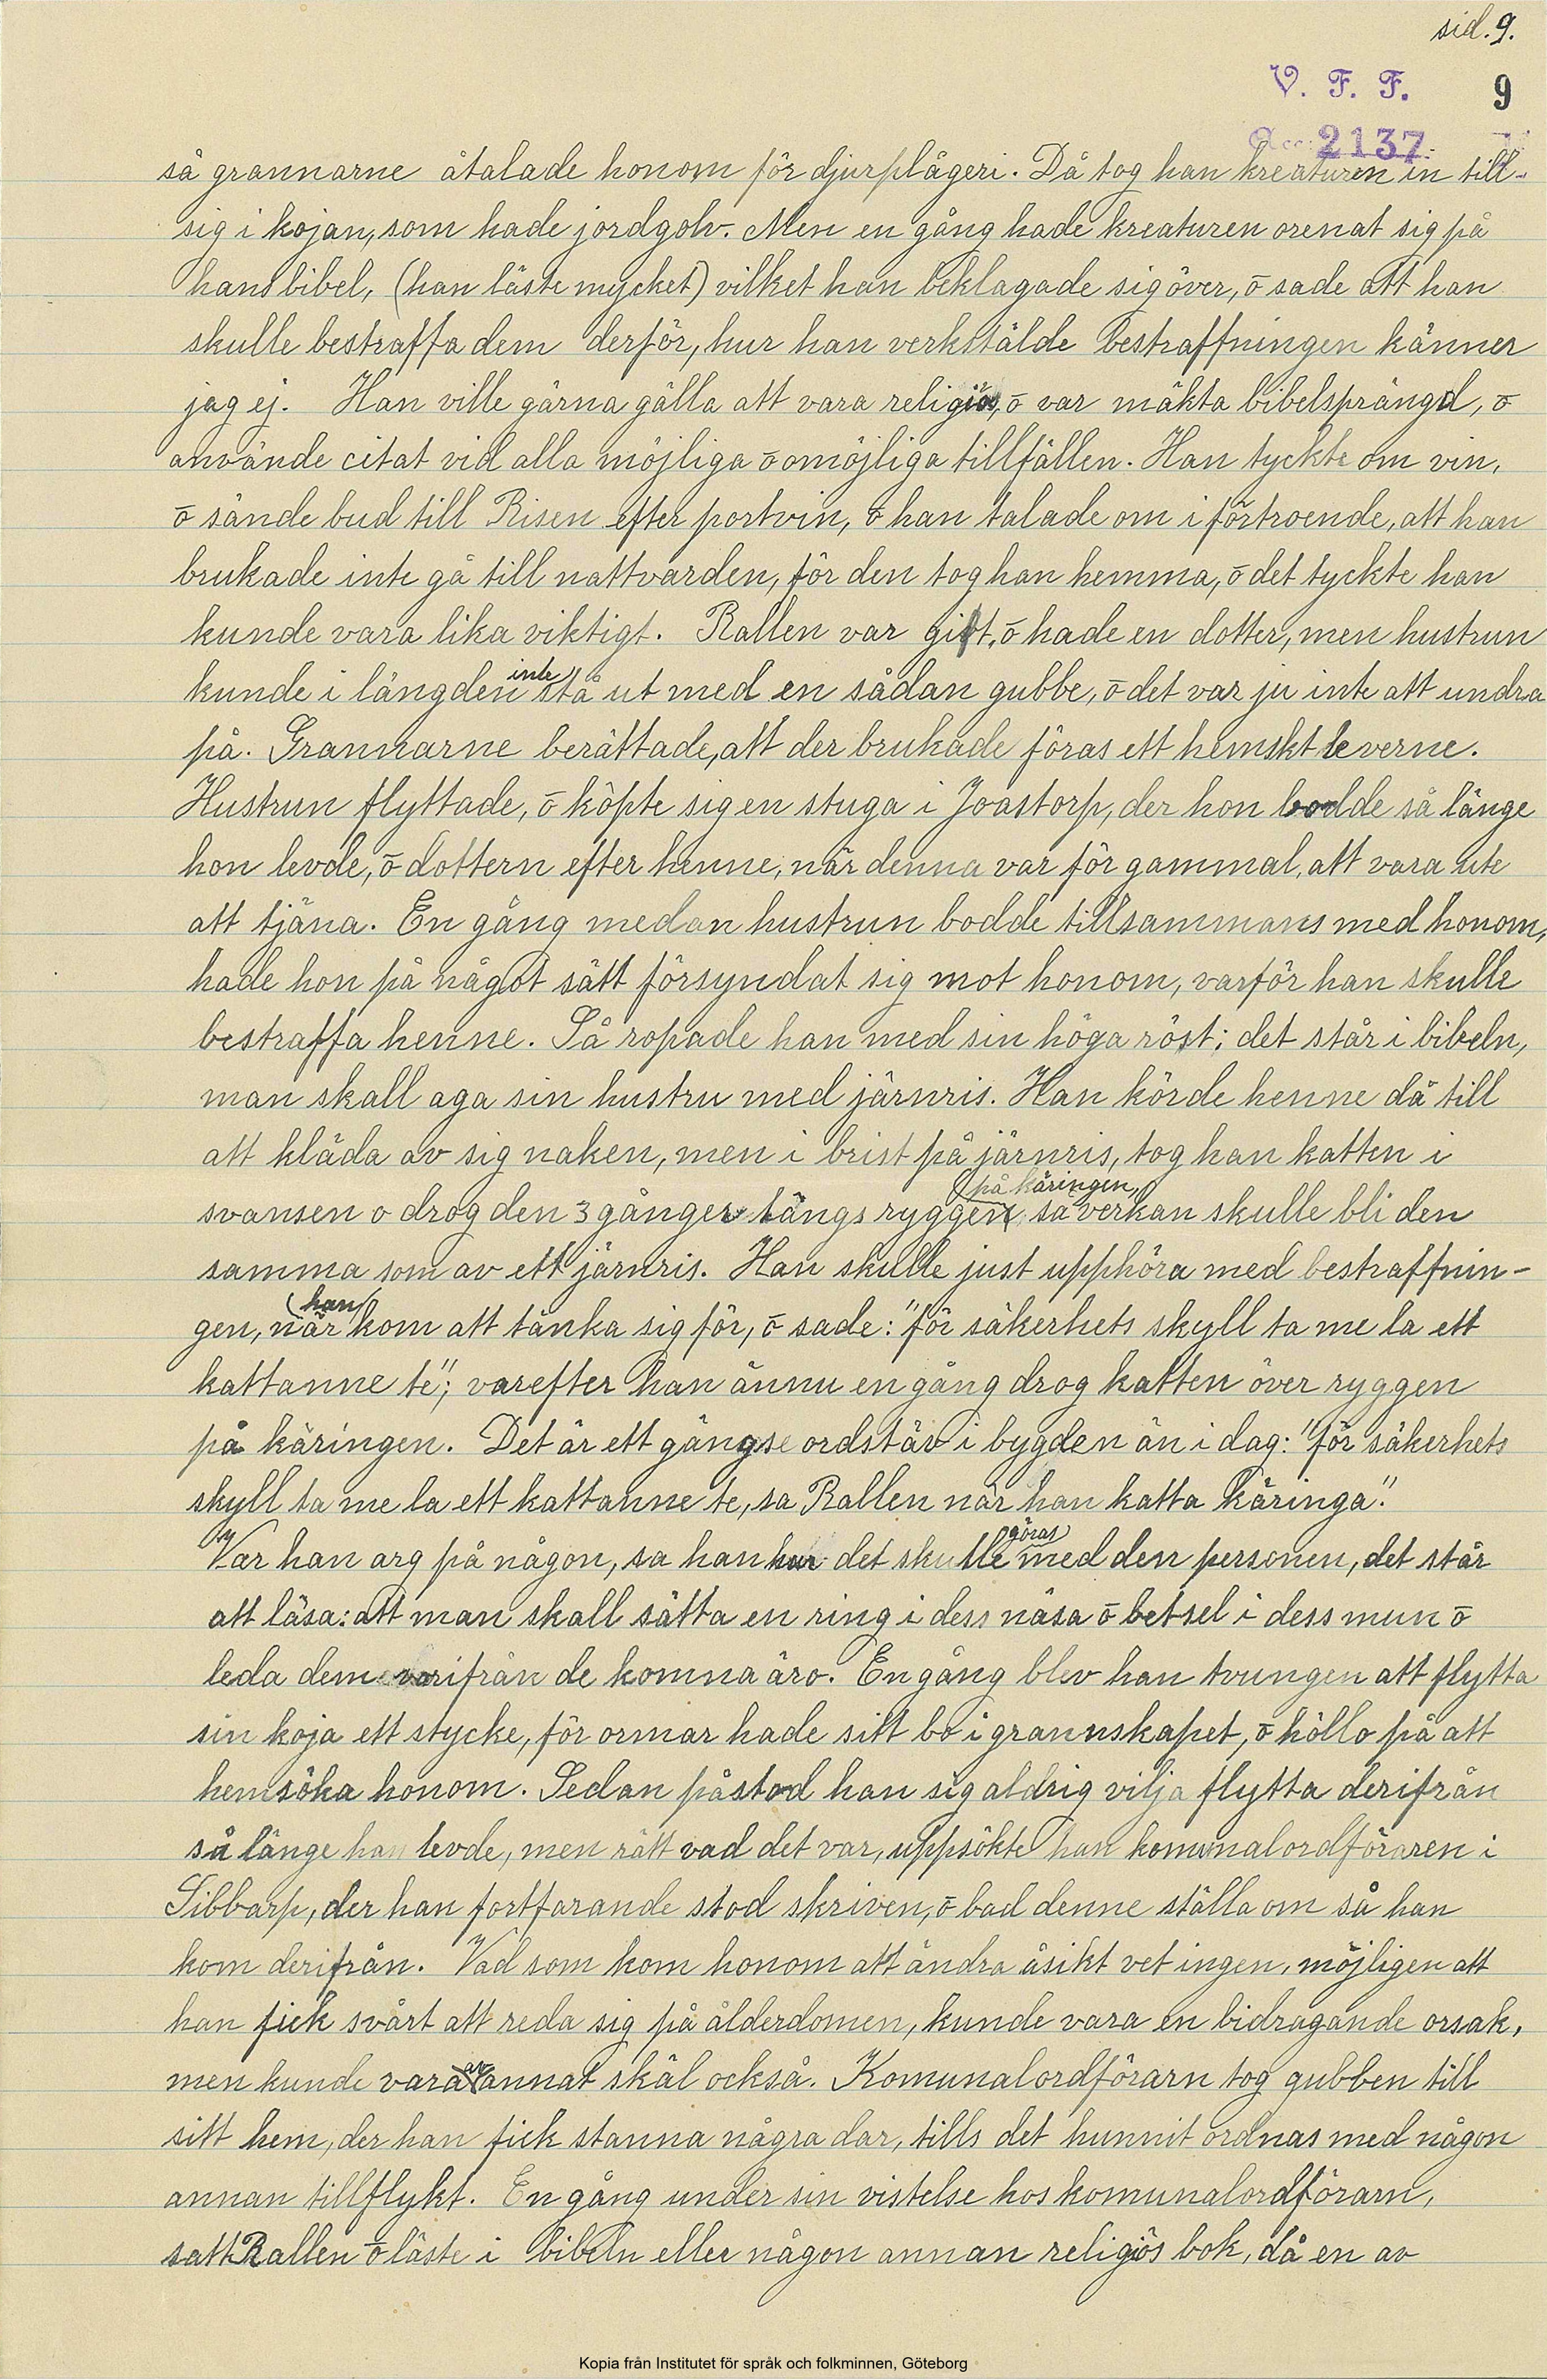 sid. 9.
V. F. F. 9
2137
så grannarne åtalade honom för djurplågeri. Då tog han kreaturen in till-
sig i kojan, som hade jordgolv. Men en gång hade kreaturen orenat sig på
hans bibel, (han läste mycket) vilket han beklagade sig över, ō sade att han
skulle bestraffa dem derför, hur han verkstälde bestraffningen känner
jag ej. Han ville gärna gälla att vara religiös, ō var mäkta bibelsprängd, ō
använde citat vid alla möjliga ō omöjliga tillfällen. Han tyckte om vin,
ō sände bud till Risen efter portvin, ō han talade om i förtroende, att han
brukade inte gå till nattvarden, för den tog han hemma, ō det tyckte han
kunde vara lika viktigt. Rallen var gift, ō hade en dotter, men hustrun
kunde i längden inte stå ut med en sådan gubbe, ō det var ju inte att undra
på. Grannarne berättade, att der brukade föras ett hemskt leverne.
Hustrun flyttade, ō köpte sig en stuga i Joastorp, der hon bodde så länge
hon levde, ō dottern efter henne, när denna var för gammal, att vara ute
att tjäna. En gång medan hustrun bodde tillsammans med honom,
hade hon på något sätt försyndat sig mot honom, varför han skulle
bestraffa henne. Så ropade han med sin höga röst; det står i bibeln,
man skall aga sin hustru med järnris. Han körde henne då till
att kläda av sig naken, men i brist på järnris, tog han katten i
svansen o drog den 3 gånger längs ryggen på käringen, så verkan skulle bli den
samma som av ett järnris. Han skulle just upphöra med bestraffnin-
gen, när han kom att tänka sig för, ō sade: "för säkerhets skyll ta me la ett
kattanne te"; varefter han ännu en gång drog katten över ryggen
på käringen. Det är ett gängse ordstäv i bygden än i dag: "för säkerhets
skyll ta me la ett kattanne te, sa Rallen när han katta käringa".
Var han arg på någon, sa han hur det skulle göras med den personen, det står
att läsa: att man skall sätta en ring i dess näsa ō betsel i dess mun ō
leda dem varifrån de komna äro. En gång blev han tvungen att flytta
sin koja ett stycke, för ormar hade sitt bo i grannskapet, ō höllo på att
hemsöka honom. Sedan påstod han sig aldrig vilja flytta derifrån
så länge han levde, men rätt vad det var, uppsökte han komunalordföraren i
Sibbarp, der han fortfarande stod skriven, ō bad denne ställa om så han
kom derifrån. Vad som kom honom att ändra åsikt vet ingen, möjligen att
han fick svårt att reda sig på ålderdomen, kunde vara en bidragande orsak,
men kunde vara av annat skäl också. Komunalordförarn tog gubben till
sitt hem, der han fick stanna några dar, tills det hunnit ordnas med någon
annan tillflykt. En gång under sin vistelse hos komunalordförarn,
satt Rallen ō läste i bibeln eller någon annan religiös bok, då en av
Kopia från Institutet för språk och folkminnen, Göteborg